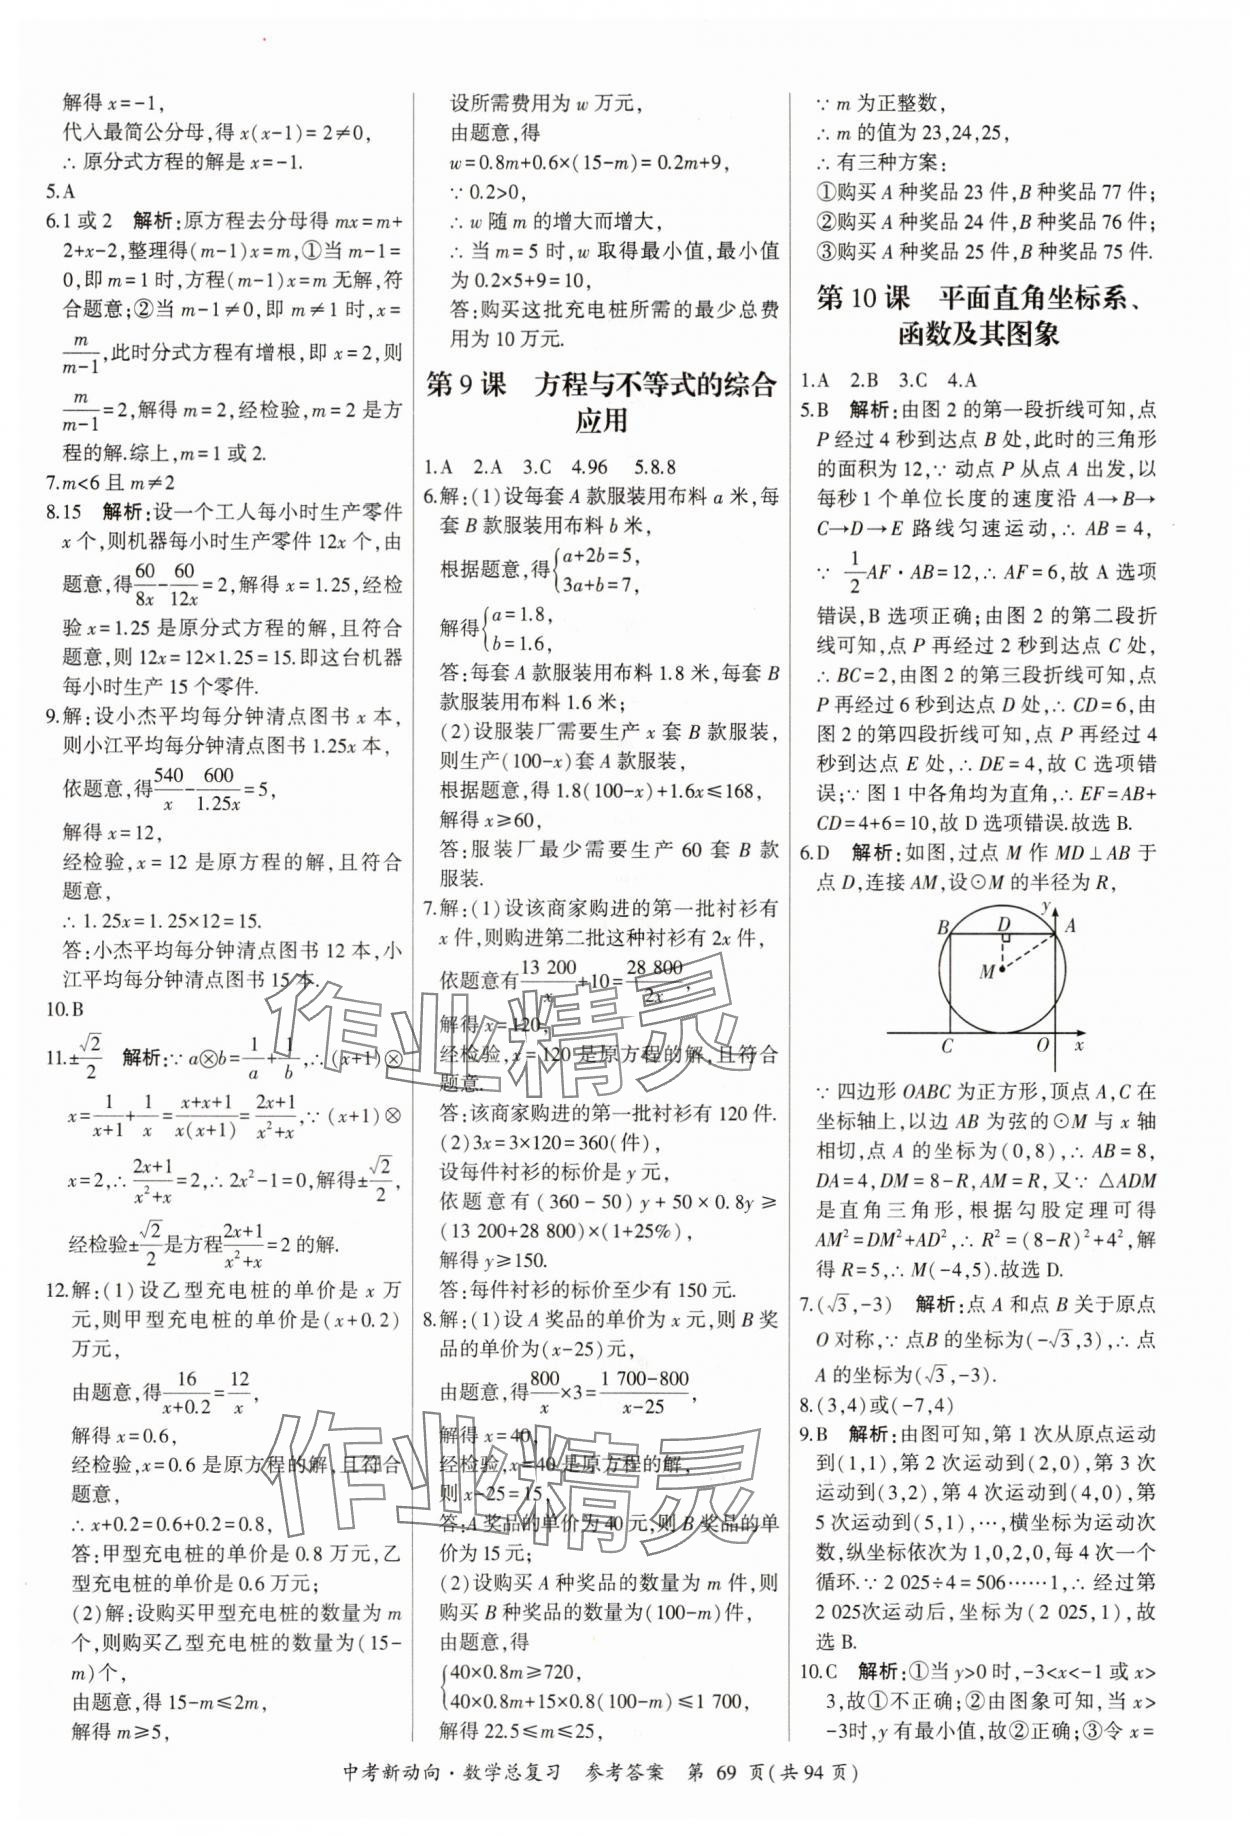 解得 x=-1,
代入最简公分母,得 x(x-1)=2≠0,
∴原分式方程的解是 x=-1.
5.A
6.1 或 2 解析:原方程去分母得 mx=m+
2+x-2,整理得(m-1)x=m,①当 m-1=
0,即 m=1 时,方程(m-1)x=m 无解,符
合题意;②当 m-1≠0,即 m≠1 时,x=
m/(m-1),此时分式方程有增根,即 x=2,则
m/(m-1)=2,解得 m=2,经检验,m=2 是方
程的解.综上,m=1 或 2.
7.m<6 且 m≠2
8.15 解析:设一个工人每小时生产零件
x 个,则机器每小时生产零件 12x 个,由
题意,得60/8x-60/12x=2,解得 x=1.25,经检
验 x=1.25 是原分式方程的解,且符合
题意,则 12x=12×1.25=15.即这台机器
每小时生产 15 个零件.
9.解:设小杰平均每分钟清点图书 x 本,
则小江平均每分钟清点图书 1.25x 本,
依题意,得540/x-600/1.25x=5,
解得 x=12,
经检验,x=12 是原方程的解,且符合
题意,
∴1.25x=1.25×12=15.
答:小杰平均每分钟清点图书 12 本,小
江平均每分钟清点图书 15 本.
10.B
11.±√2/2 解析:∵a⊗b=1/a+1/b,∴(x+1)⊗
x=1/(x+1)+1/x=(x+x+1)/(x(x+1))=(2x+1)/(x²+x),∵(x+1)⊗
x=2,∴(2x+1)/(x²+x)=2,∴2x²-1=0,解得±√2/2,
经检验±√2/2是方程(2x+1)/(x²+x)=2 的解.
12.解:(1)设乙型充电桩的单价是 x 万
元,则甲型充电桩的单价是(x+0.2)
万元,
由题意,得16/(x+0.2)=12/x,
解得 x=0.6,
经检验,x=0.6 是原方程的解,且符合
题意,
∴x+0.2=0.6+0.2=0.8,
答:甲型充电桩的单价是 0.8 万元,乙
型充电桩的单价是 0.6 万元;
(2)解:设购买甲型充电桩的数量为 m
个,则购买乙型充电桩的数量为(15-
m)个,
由题意,得 15-m≤2m,
解得 m≥5,
设所需费用为 w 万元,
由题意,得
w=0.8m+0.6×(15-m)=0.2m+9,
∵0.2>0,
∴w 随 m 的增大而增大,
∴当 m=5 时,w 取得最小值,最小值
为 0.2×5+9=10,
答:购买这批充电桩所需的最少总费
用为 10 万元.
第 9 课 方程与不等式的综合
应用
1.A 2.A 3.C 4.96 5.8.8
6.解:(1)设每套 A 款服装用布料 a 米,每
套 B 款服装用布料 b 米,
根据题意,得{a+2b=5,
3a+b=7,
解得{a=1.8,
b=1.6,
答:每套 A 款服装用布料 1.8 米,每套 B
款服装用布料 1.6 米;
(2)设服装厂需要生产 x 套 B 款服装,
则生产(100-x)套 A 款服装,
根据题意,得 1.8(100-x)+1.6x≤168,
解得 x≥60,
答:服装厂最少需要生产 60 套 B 款
服装.
7.解:(1)设该商家购进的第一批衬衫有
x 件,则购进第二批这种衬衫有 2x 件,
依题意有13 200/x+10=28 800/2x,
解得 x=120,
经检验,x=120 是原方程的解,且符合
题意.
答:该商家购进的第一批衬衫有 120 件.
(2)3x=3×120=360(件),
设每件衬衫的标价是 y 元,
依题意有(360-50)y+50×0.8y≥
(13 200+28 800)×(1+25%)
解得 y≥150.
答:每件衬衫的标价至少有 150 元.
8.解:(1)设 A 奖品的单价为 x 元,则 B 奖
品的单价为(x-25)元,
由题意,得800/x×3=(1 700-800)/(x-25),
解得 x=40,
经检验,x=40 是原方程的解,
则 x-25=15,
答:A 奖品的单价为 40 元,则 B 奖品的单
价为 15 元;
(2)设购买 A 种奖品的数量为 m 件,则
购买 B 种奖品的数量为(100-m)件,
由题意,得
{40×0.8m≥720,
40×0.8m+15×0.8(100-m)≤1 700,
解得 22.5≤m≤25,
∵m 为正整数,
∴m 的值为 23,24,25,
∴有三种方案:
①购买 A 种奖品 23 件,B 种奖品 77 件;
②购买 A 种奖品 24 件,B 种奖品 76 件;
③购买 A 种奖品 25 件,B 种奖品 75 件.
第 10 课 平面直角坐标系、
函数及其图象
1.A 2.B 3.C 4.A
5.B 解析:由图 2 的第一段折线可知,点
P 经过 4 秒到达点 B 处,此时的三角形
的面积为 12,∵动点 P 从点 A 出发,以
每秒 1 个单位长度的速度沿 A→B→
C→D→E 路线匀速运动,∴AB=4,
∵1/2AF·AB=12,∴AF=6,故 A 选项
错误,B 选项正确;由图 2 的第二段折
线可知,点 P 再经过 2 秒到达点 C 处,
∴BC=2,由图 2 的第三段折线可知,点
P 再经过 6 秒到达点 D 处,∴CD=6,由
图 2 的第四段折线可知,点 P 再经过 4
秒到达点 E 处,∴DE=4,故 C 选项错
误;∵图 1 中各角均为直角,∴EF=AB+
CD=4+6=10,故 D 选项错误.故选 B.
6.D 解析:如图,过点 M 作 MD⊥AB 于
点 D,连接 AM,设⊙M 的半径为 R,
y
B D A
M
C O x
∵四边形 OABC 为正方形,顶点 A,C 在
坐标轴上,以边 AB 为弦的⊙M 与 x 轴
相切,点 A 的坐标为(0,8),∴AB=8,
DA=4,DM=8-R,AM=R,又∵△ADM
是直角三角形,根据勾股定理可得
AM²=DM²+AD²,∴R²=(8-R)²+4²,解
得 R=5,∴M(-4,5).故选 D.
7.(√3,-3) 解析:点 A 和点 B 关于原点
O 对称,∵点B 的坐标为(-√3,3),∴点
A 的坐标为(√3,-3).
8.(3,4)或(-7,4)
9.B 解析:由图可知,第 1 次从原点运动
到(1,1),第 2 次运动到(2,0),第 3 次
运动到(3,2),第 4 次运动到(4,0),第
5 次运动到(5,1),…,横坐标为运动次
数,纵坐标依次为 1,0,2,0,每 4 次一个
循环.∵2 025÷4=506……1,∴经过第
2 025次运动后,坐标为(2 025,1),故
选 B.
10.C 解析:①当 y>0 时,-3<x<-1 或 x>
3,故①不正确;②由图象可知,当 x>
-3时,y 有最小值,故②正确;③令 x=
中考新动向·数学总复习 参考答案 第 69 页(共 94 页)
作业精灵
作业精灵